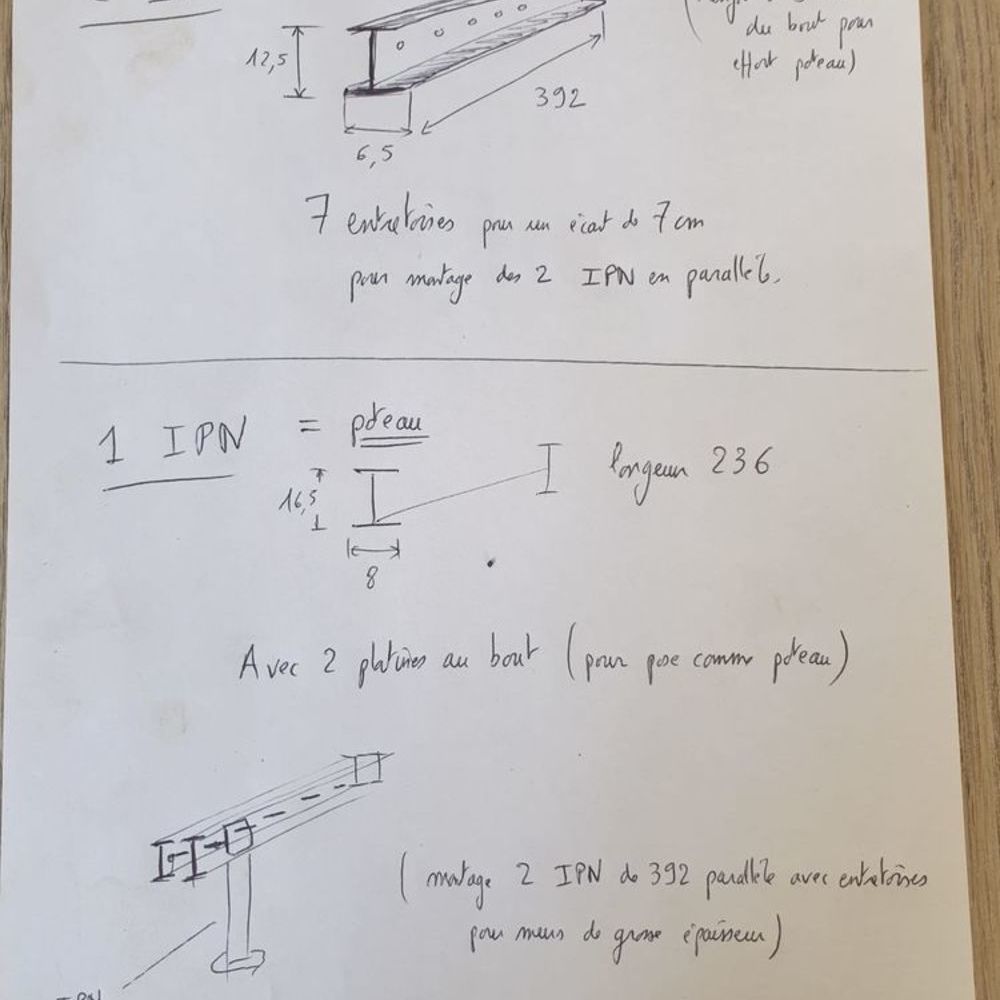 du bout pour
effort poteau)
12,5
392
6,5
7 entretoises pour un écart de 7 cm
pour montage des 2 IPN en parallèle.
1 IPN = poteau
16,5
longeur 236
8
Avec 2 platines au bout (pour pose comme poteau)
(montage 2 IPN de 392 parallèle avec entretoises
pour murs de grosse épaisseur)
IPN